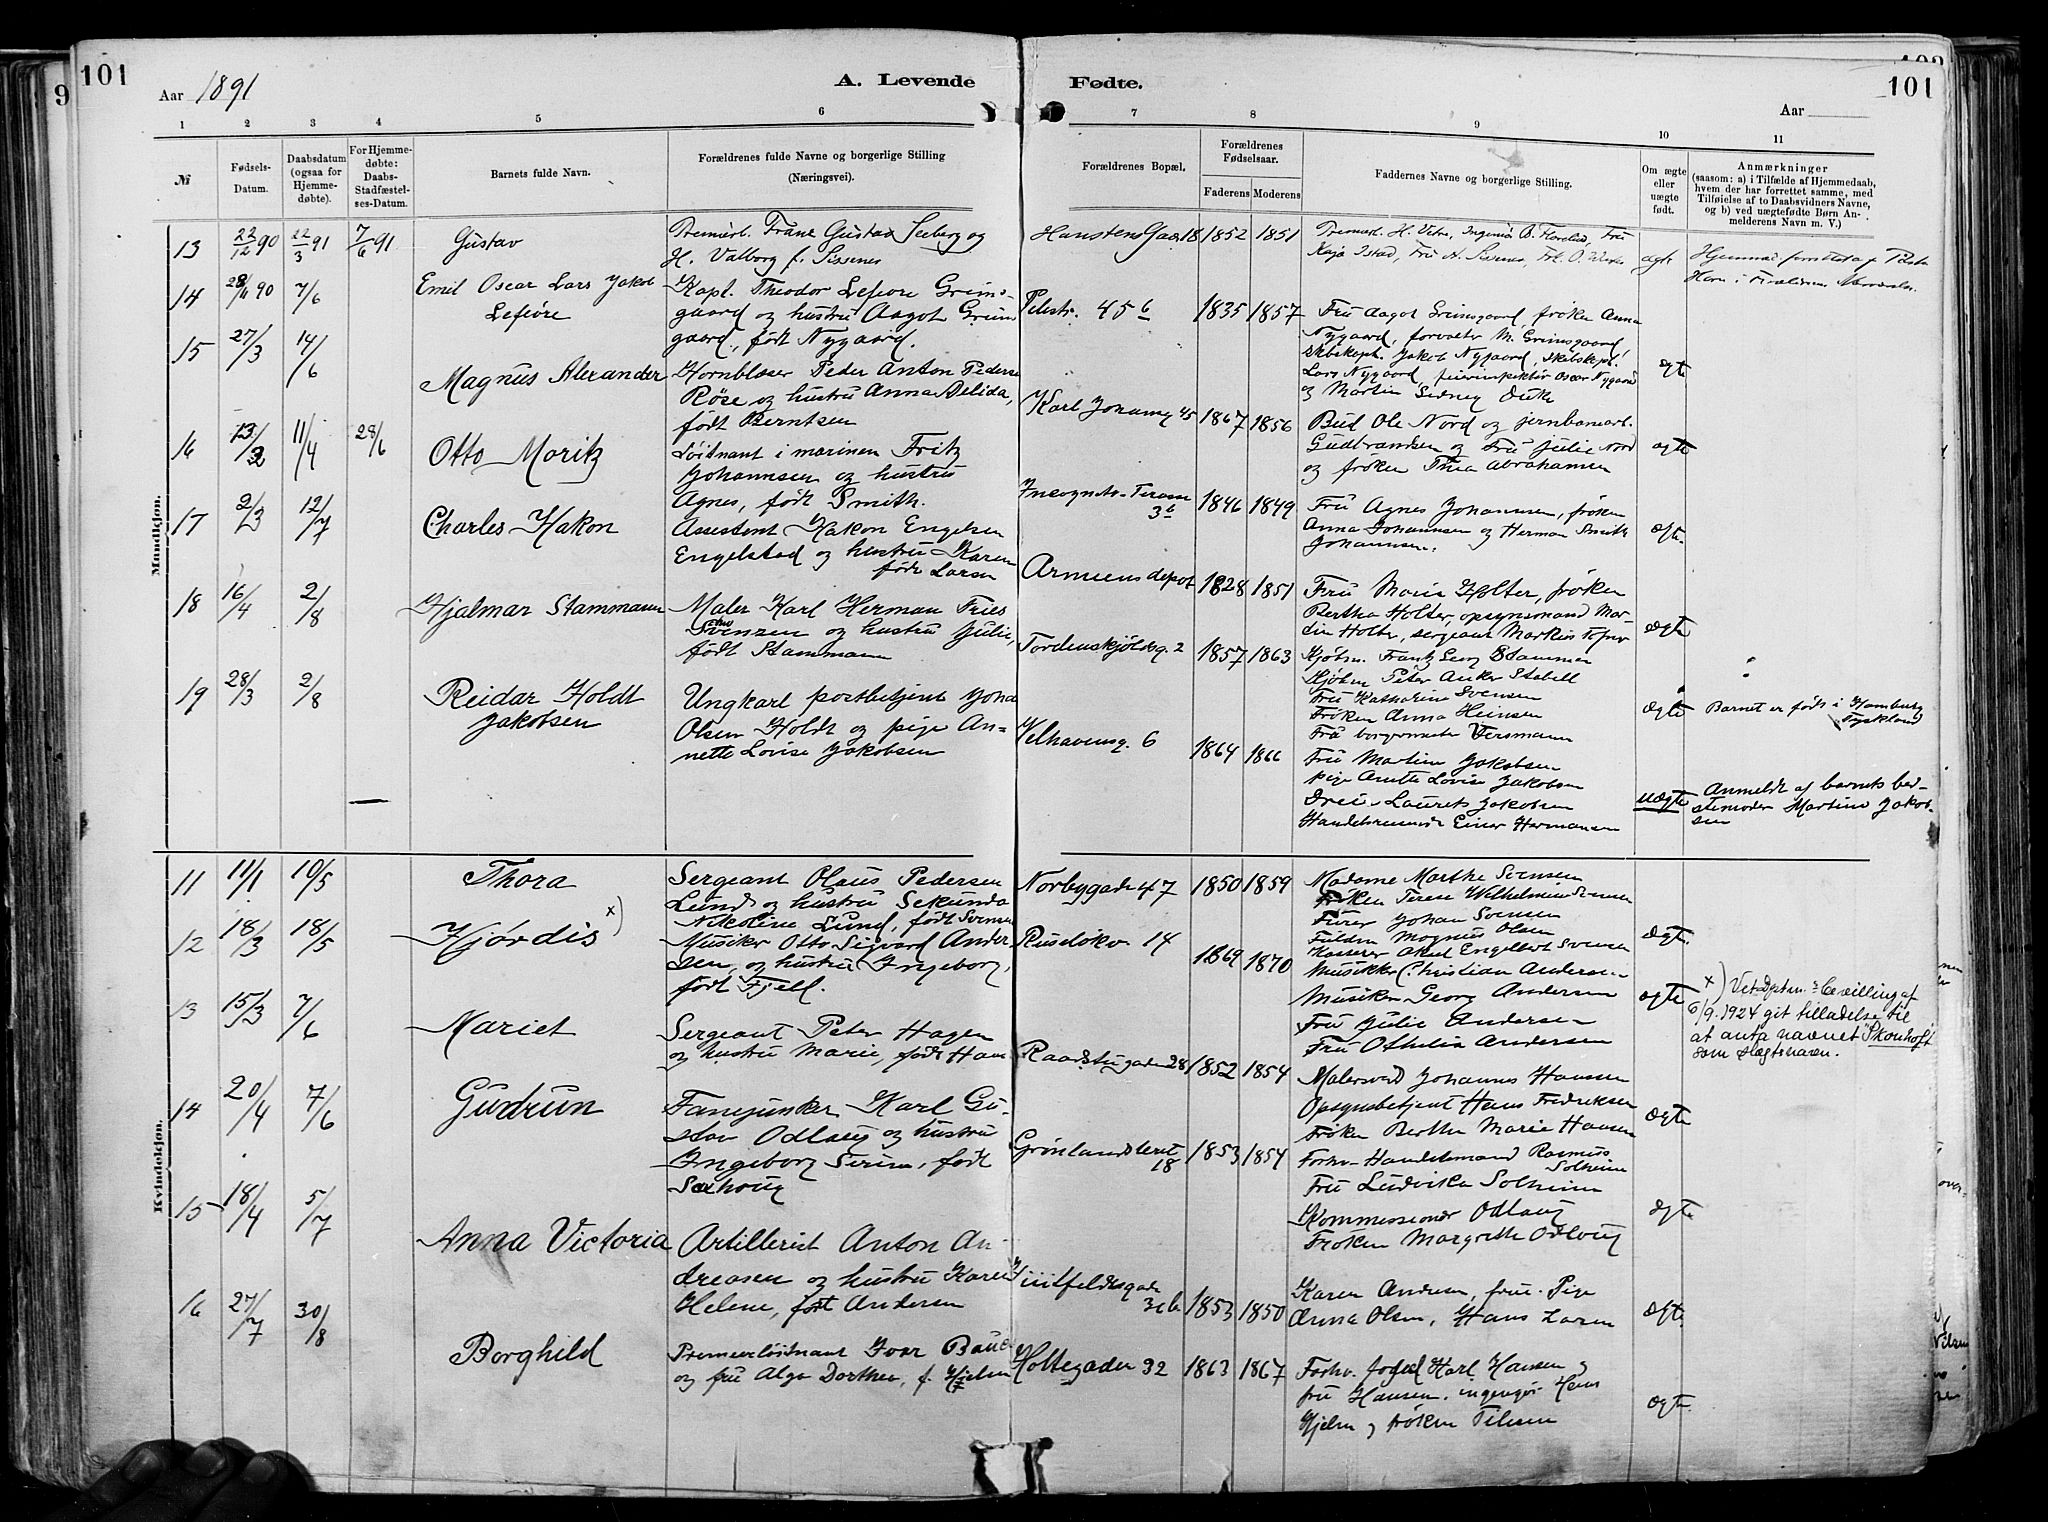 101
Aar 1891
A. Levende
Fødte.
101
Aar
1 2 3 4 5 6 7 8 9 10 11
№
Fødsels-Datum.
Daabsdatum (ogsaa for Hjemme-døbte).
For Hjemme-døbte: Daabs-Stadfæstel-ses-Datum.
Barnets fulde Navn.
Forældrenes fulde Navne og borgerlige Stilling (Næringsvei).
Forældrenes Bopæl.
Forældrenes Fødselsaar.
Faderens Moderens
Faddernes Navne og borgerlige Stilling.
Om ægte eller uægte født.
Anmærkninger (saasom: a) i Tilfælde af Hjemmedaab, hvem der har forrettet samme, med Tilføielse af to Daabsvidners Navne, og b) ved uægtefødte Børn An-melderens Navn m. V.)
Mandkjøn.
13 22/12 90 22/3 91 7/6 91 Gustav
Premierl. Franz Gustav Seeberg og
H. Valborg f. Sissenes
Hanstensgade 18 1852 1851
14 28/11 90 7/6 Emil Oscar Lars Jakob
Lefèvre
Kapt. Theodor Lefevre Grims-
gaard og hustru Aagot Grims
gaard, født Nygaard.
Pilestr. 45 b 1835 1857
Fru Aagot Grimsgaard, frøken Anna
Nygaard, forvalter M. Grimsgaard
skibskapt. Jakob Nygaard, skibskapt.
Lars Nygaard, Oscar Nygaard
og Martin Sidney
ægte
15 27/3 14/6 Magnus Alexander
Hornblæser Peder Anton Pederse
Røse og hustru Anna Delida,
født Berntsen
Karl Johansg 45 1867 1856
Bud Ole Nord og jernbanearb.
Gudbrandsen og Fru Julie Nord
og frøken Thea Abrahamsen
ægte
16 13/2 11/4 28/6 Otto Moritz
Løitnant i marinen Fritz
Johannsen og hustru
Agnes, født Smith.
Incognito-Terasse
3 b 1846 1849
Fru Agnes Johannsen, frøken
Anna Johannsen og Herman Smith
Johannsen.
ægte.
17 2/3 12/7 Charles Hakon
Assistent Hakon Engelsen
Engelstad og hustru Karen
født Larsen
Armeens depot 1828 1851
Fru Marie Holter, frøken
Bertha Holter, opsynsmand Mar-
tin Holter, sergeant Markus
ægte
18 16/4 2/8 Hjalmar Stammann
Maler Karl Herman Fries
Svensen og hustru Julie,
født Stammann
Tordenskjoldsg. 2 1857 1863
Kjøbm. Frantz Stamman
Kjøbm Peter Anker Stabell
Fru Katharine Svensen
Frøken Anna Heinsen
Fru Versmann
ægte Barnet er født i Hamburg
Tyskland
19 28/3 2/8 Reidar Holdt
Jakobsen
Ungkarl postbetjent Joha
Olsen Holdt og pige An-
nette Lovise Jakobsen
Velhavensg. 6 1864 1866
Fru Martine Jakobsen
pige Anette Lovise Jakobsen
Laurets Jakobsen
Einar Hermansen
uægte Anmeldt af barnets bed-
stemoder Martine Jakob-
sen
Kvindekjøn.
11 11/1 10/5 Thora
Sergeant Olaus Pedersen
Lund og hustru Sekunda
Nikoline Lund, født Svensen
Norbygade 47 1850 1859
Madame Marthe Svensen
Frøken Terese Wilhelmine Svensen
Furer Johan Svensen
Magnus Olsen
Kasserer Aksel Engelbert Svensen
ægt.
12 18/3 18/5 Hjørdis x)
Musiker Otto Sigvard Ander-
sen, og hustru Ingeborg,
født Fjell.
Ruseløkv. 14 1869 1870
Musikker Christian Andersen
Musiker Georg Andersen
Fru Julie Andersen
Fru Othelia Andersen
ægte
x) Ved Jdptm.s Bevilling af
6/9.1924 git tilladelse til
at anta navnet "Skouhoft"
som slegtsnavn.
13 15/3 7/6 Mariet
Sergeant Peter Hagen
og hustru Marie, født Hans
Raadstugaden 28 1852 1854
Malersvend Johannes Hansen
Opsynsbetjent Hans Fredriksen
Frøken Berthe Marie Hansen
ægte
14 20/4 7/6 Gudrun
Fanejunker Karl Gu-
stav Odlaug og hustru
Ingeborg Serine, født
Saxhaug
Grønlandsleret
18 1853 1854
Forhv. Handelsmand Rasmus
Solheim
Fru Ludvika Solheim
Kommissionær Odlaug
Frøken Margrethe Odlaug
ægte
15 18/4 5/7 Anna Victoria
Artillerist Anton An-
dreasen og hustru Karen
Helene, født Andersen
Huitfeldtsgade
3 b 1853 1850
Karen Andersen, frue. Pige
Anna Olsen, Hans Larsen
ægte.
16 27/7 30/8 Borghild
Premierløitnant Ivar
og fru Alga Dorthea, f. Hjelm
Holtegaden 32 1863 1867
Forhv. foged Karl Hansen og
fru Hansen, ingeniør Hans
Hjelm og frøken
ægte.